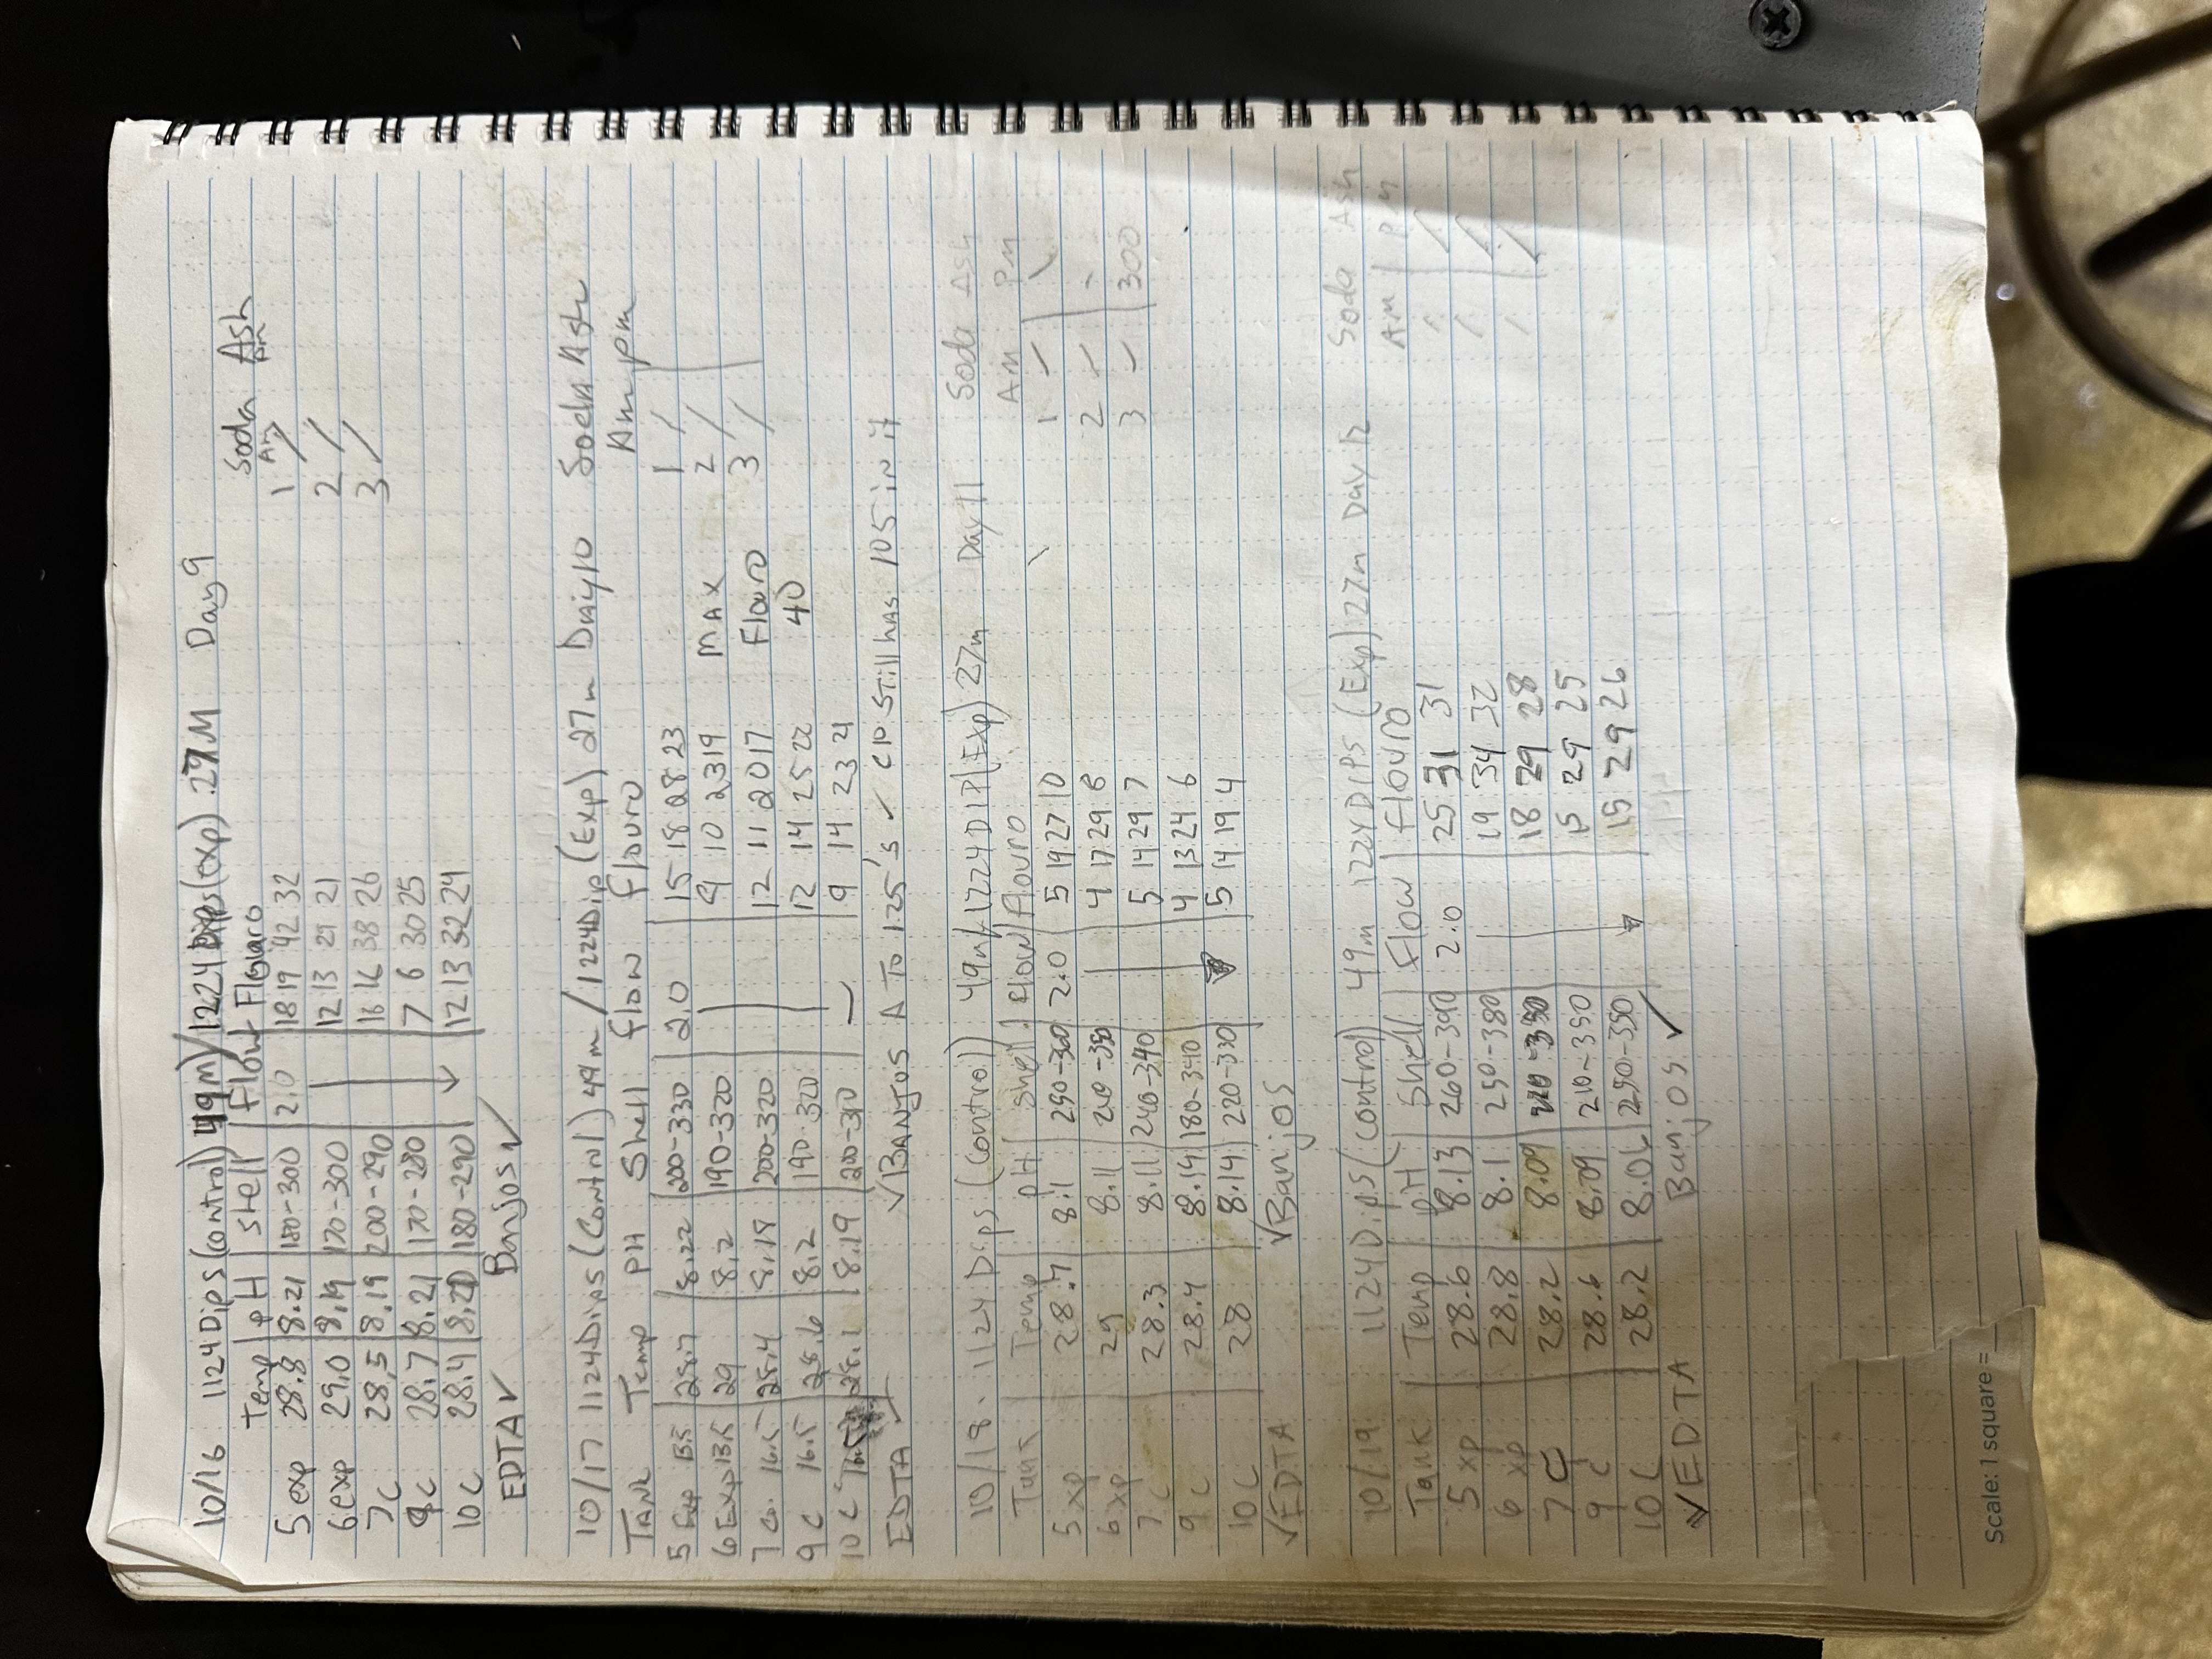 10/16 1124 Dips (control) 49m / 1224 Dips (exp) .27M Day 9
Temp | pH | shell | Flow Flouro Soda Ash
Am Pm
5 exp 28.8 8.21 180-300 2.0 18 19 42 32 1 /
6 exp 29.0 8.19 170-300 12 13 29 21 2 /
7C 28.5 8.19 200-290 16 16 38 26 3 /
9C 28.7 8.21 170-280 7 6 30 25
10 C 28.4 8.20 180-290 12 13 32 24
EDTA ✓ Banjos ✓
10/17 1124 Dips (Control) 49m / 1224 Dip (Exp) 27m Day 10 Soda Ash
Tank Temp PH Shell flow flouro Am pm
5 Exp 13.5 28.7 8.22 200-330 2.0 15 18 28 23 1 /
6 Exp 13.5 29 8.2 190-320 9 10 23 19 MAX 2 /
7 Co. 16.5 28.4 8.18 200-320 12 11 20 17 Flouro 3 /
9 C 16.5 28.6 8.2 190-320 12 14 25 22 40
10 C 28.1 8.19 200-310 — 9 14 23 21
EDTA ✓ ✓ BANJOS A TO 125's ✓ C10 STill hAS 105 iN iT
10/18 1124 Dips (Control) 49m / 1224 DIP (Exp) 27m Day 11 Soda Ash
Tank Temp pH Shell Flow Flouro AM PM
5 xp 28.7 8.1 250-360 2.0 5 19 27 10 1 ✓ \
6 xp 29 8.11 240-350 4 17 29 8 2 ✓ -
7 C 28.3 8.11 240-340 5 14 29 7 3 ✓ 300
9 C 28.4 8.14 180-340 4 13 24 6
10 C 28 8.14 220-330 5 14 19 4
✓ EDTA ✓ Banjos
10/19 1124 Dips (control) 49m 1224 DIPS (Exp) 27m Day 12 Soda Ash
Tank Temp pH Shell Flow Flouro AM PM
5 xp 28.6 8.13 260-390 2.0 25 31 31
6 xp 28.8 8.1 250-380 19 34 32
7 C 28.2 8.09 18 29 28
9 C 28.6 8.09 210-350 15 29 25
10 C 28.2 8.06 250-350 15 29 26
✓ EDTA Banjos ✓
Scale: 1 square =